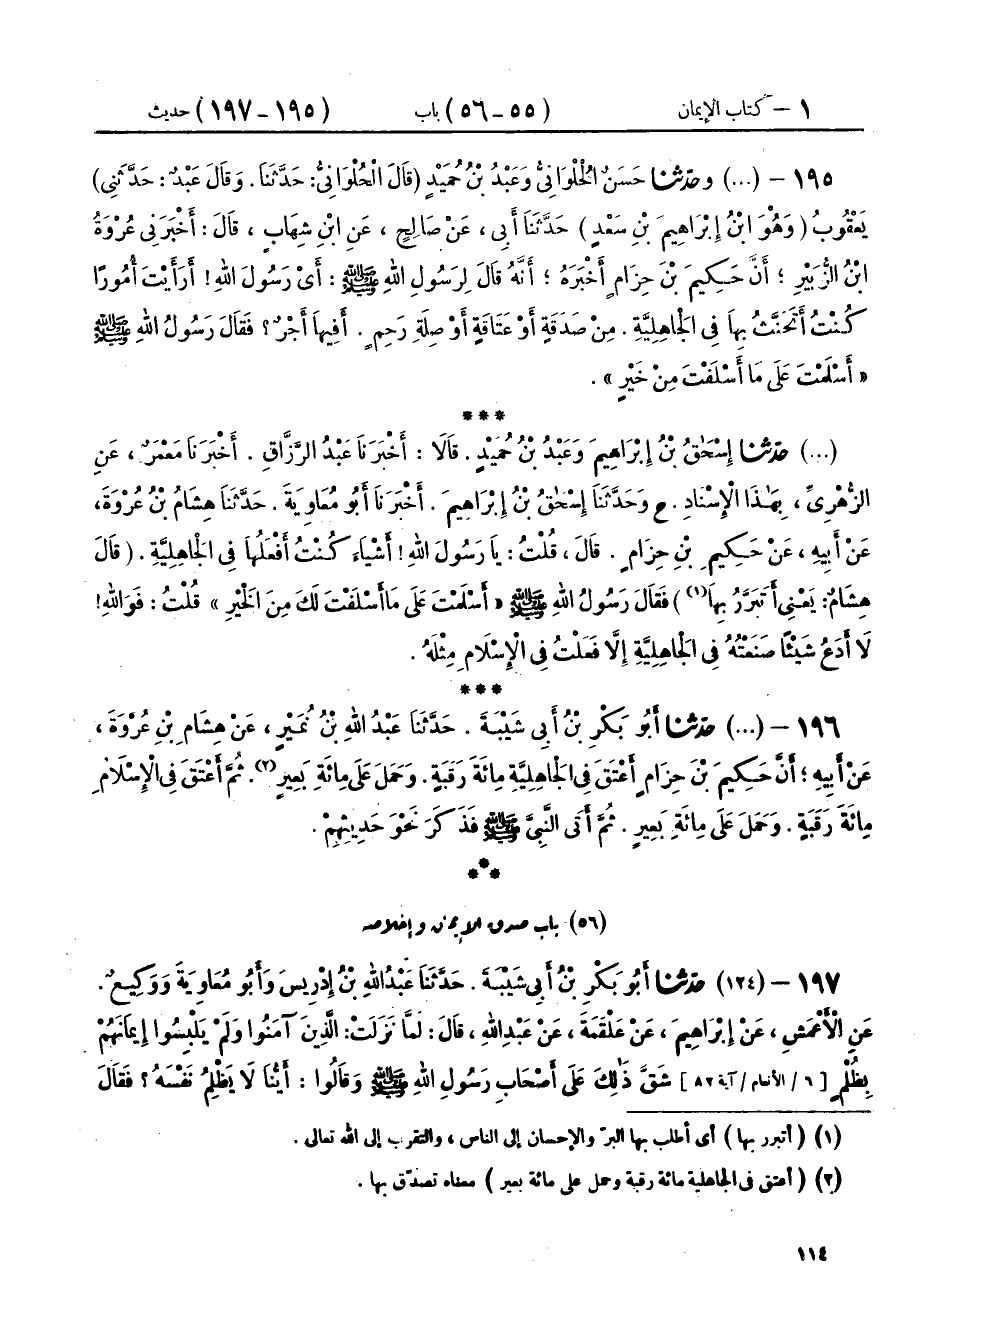 ١ – كتاب الإيمان (٥٥ – ٥٦) باب (١٩٥ – ١٩٧) حديث
١٩٥ – (...) وحدّثنا حَسَنٌ الْحُلْوَانِيُّ وَعَبْدُ بْنُ حُمَيْدٍ (قَالَ الْحُلْوَانِيُّ: حَدَّثَنَا. وَقَالَ عَبْدٌ: حَدَّثَنِي)
يَعْقُوبُ (وَهُوَ ابْنُ إِبْرَاهِيمَ بْنِ سَعْدٍ) حَدَّثَنَا أَبِي، عَنْ صَالِحٍ، عَنِ ابْنِ شِهَابٍ، قَالَ: أَخْبَرَنِي عُرْوَةُ
ابْنُ الزُّبَيْرِ؛ أَنَّ حَكِيمَ بْنَ حِزَامٍ أَخْبَرَهُ؛ أَنَّهُ قَالَ لِرَسُولِ اللهِ ﷺ: أَىْ رَسُولَ اللهِ! أَرَأَيْتَ أُمُورًا
كُنْتُ أَتَحَنَّثُ بِهَا فِي الْجَاهِلِيَّةِ. مِنْ صَدَقَةٍ أَوْ عَتَاقَةٍ أَوْ صِلَةِ رَحِمٍ. أَفِيهَا أَجْرٌ؟ فَقَالَ رَسُولُ اللهِ ﷺ
«أَسْلَمْتَ عَلَى مَا أَسْلَفْتَ مِنْ خَيْرٍ».
***
(...) حدّثنا إِسْحَٰقُ بْنُ إِبْرَاهِيمَ وَعَبْدُ بْنُ حُمَيْدٍ. قَالَا: أَخْبَرَنَا عَبْدُ الرَّزَّاقِ. أَخْبَرَنَا مَعْمَرٌ، عَنِ
الزُّهْرِيِّ، بِهَٰذَا الْإِسْنَادِ. ح وَحَدَّثَنَا إِسْحَٰقُ بْنُ إِبْرَاهِيمَ. أَخْبَرَنَا أَبُو مُعَاوِيَةَ. حَدَّثَنَا هِشَامُ بْنُ عُرْوَةَ،
عَنْ أَبِيهِ، عَنْ حَكِيمِ بْنِ حِزَامٍ. قَالَ، قُلْتُ: يَا رَسُولَ اللهِ! أَشْيَاءَ كُنْتُ أَفْعَلُهَا فِي الْجَاهِلِيَّةِ. (قَالَ
هِشَامٌ: يَعْنِي أَتَبَرَّرُ بِهَا(١)) فَقَالَ رَسُولُ اللهِ ﷺ «أَسْلَمْتَ عَلَى مَا أَسْلَفْتَ لَكَ مِنَ الْخَيْرِ» قُلْتُ: فَوَاللهِ!
لَا أَدَعُ شَيْئًا صَنَعْتُهُ فِي الْجَاهِلِيَّةِ إِلَّا فَعَلْتُ فِي الْإِسْلَامِ مِثْلَهُ.
***
١٩٦ – (...) حدّثنا أَبُو بَكْرِ بْنُ أَبِي شَيْبَةَ. حَدَّثَنَا عَبْدُ اللهِ بْنُ نُمَيْرٍ، عَنْ هِشَامِ بْنِ عُرْوَةَ،
عَنْ أَبِيهِ؛ أَنَّ حَكِيمَ بْنَ حِزَامٍ أَعْتَقَ فِي الْجَاهِلِيَّةِ مِائَةَ رَقَبَةٍ. وَحَمَلَ عَلَى مِائَةِ بَعِيرٍ(٢). ثُمَّ أَعْتَقَ فِي الْإِسْلَامِ
مِائَةَ رَقَبَةٍ. وَحَمَلَ عَلَى مِائَةِ بَعِيرٍ. ثُمَّ أَتَى النَّبِيَّ ﷺ فَذَكَرَ نَحْوَ حَدِيثِهِمْ.
***
(٥٦) باب صدق الإيمان وإخلاصه
١٩٧ – (١٢٤) حدّثنا أَبُو بَكْرِ بْنُ أَبِي شَيْبَةَ. حَدَّثَنَا عَبْدُ اللهِ بْنُ إِدْرِيسَ وَأَبُو مُعَاوِيَةَ وَوَكِيعٌ.
عَنِ الْأَعْمَشِ، عَنْ إِبْرَاهِيمَ، عَنْ عَلْقَمَةَ، عَنْ عَبْدِ اللهِ، قَالَ: لَمَّا نَزَلَتْ: الَّذِينَ آمَنُوا وَلَمْ يَلْبِسُوا إِيمَانَهُمْ
بِظُلْمٍ [٦ / الأنعام / آية ٨٢] شَقَّ ذَٰلِكَ عَلَى أَصْحَابِ رَسُولِ اللهِ ﷺ وَقَالُوا: أَيُّنَا لَا يَظْلِمُ نَفْسَهُ؟ فَقَالَ
(١) (أتبرر بها) أى أطلب بها البرّ والإحسان إلى الناس، والتقرب إلى الله تعالى.
(٢) (أعتق فى الجاهلية مائة رقبة وحمل على مائة بعير) معناه تصدّق بها.
١١٤